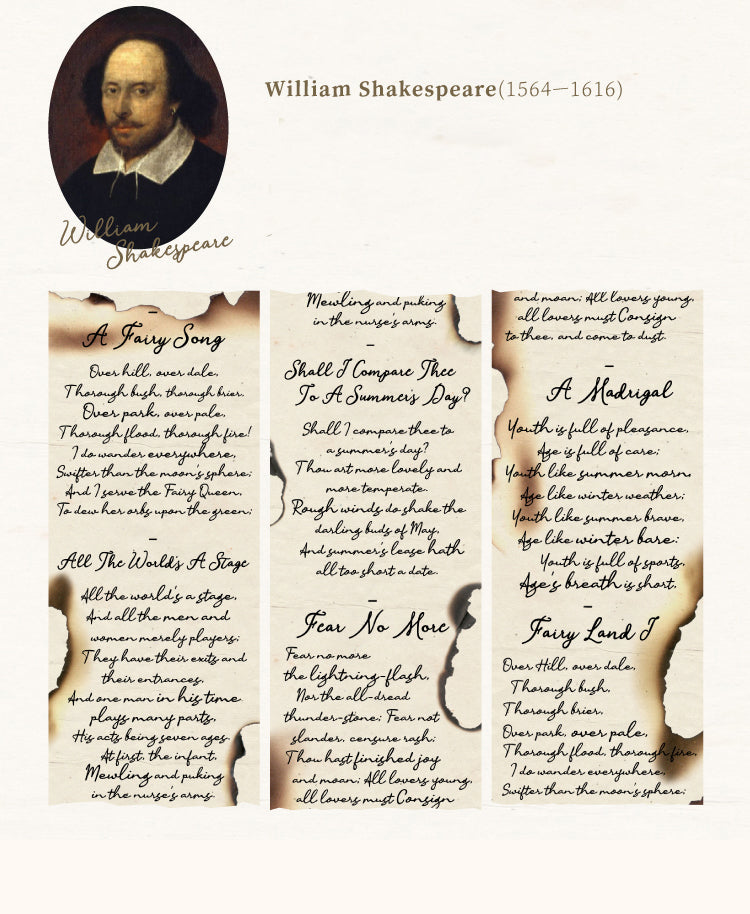 William Shakespeare(1564—1616)
William
Shakespeare
A Fairy Song
Over hill, over dale,
Thorough bush, thorough brier.
Over park, over pale,
Thorough flood, thorough fire!
I do wander everywhere,
Swifter than the moon's sphere;
And I serve the Fairy Queen,
To dew her orbs upon the green;
All The World's A Stage
All the world's a stage,
And all the men and
women merely players;
They have their exits and
their entrances,
And one man in his time
plays many parts,
His acts being seven ages.
At first, the infant,
Mewling and puking
in the nurse's arms.
Mewling and puking
in the nurse's arms.
Shall I Compare Thee
To A Summer's Day?
Shall I compare thee to
a summer's day?
Thou art more lovely and
more temperate.
Rough winds do shake the
darling buds of May,
And summer's lease hath
all too short a date.
Fear No More
Fear no more
the lightning-flash,
Nor the all-dread
thunder-stone; Fear not
slander, censure rash;
Thou hast finished joy
and moan; All lovers young,
all lovers must Consign
and moan; All lovers young,
all lovers must Consign
to thee, and come to dust.
A Madrigal
Youth is full of pleasance,
Age is full of care;
Youth like summer morn,
Age like winter weather;
Youth like summer brave,
Age like winter bare:
Youth is full of sports,
Age's breath is short,
Fairy Land I
Over Hill, over dale,
Thorough bush,
Thorough brier.
Over park, over pale,
Thorough flood, thorough fire,
I do wander everywhere,
Swifter than the moon's sphere;